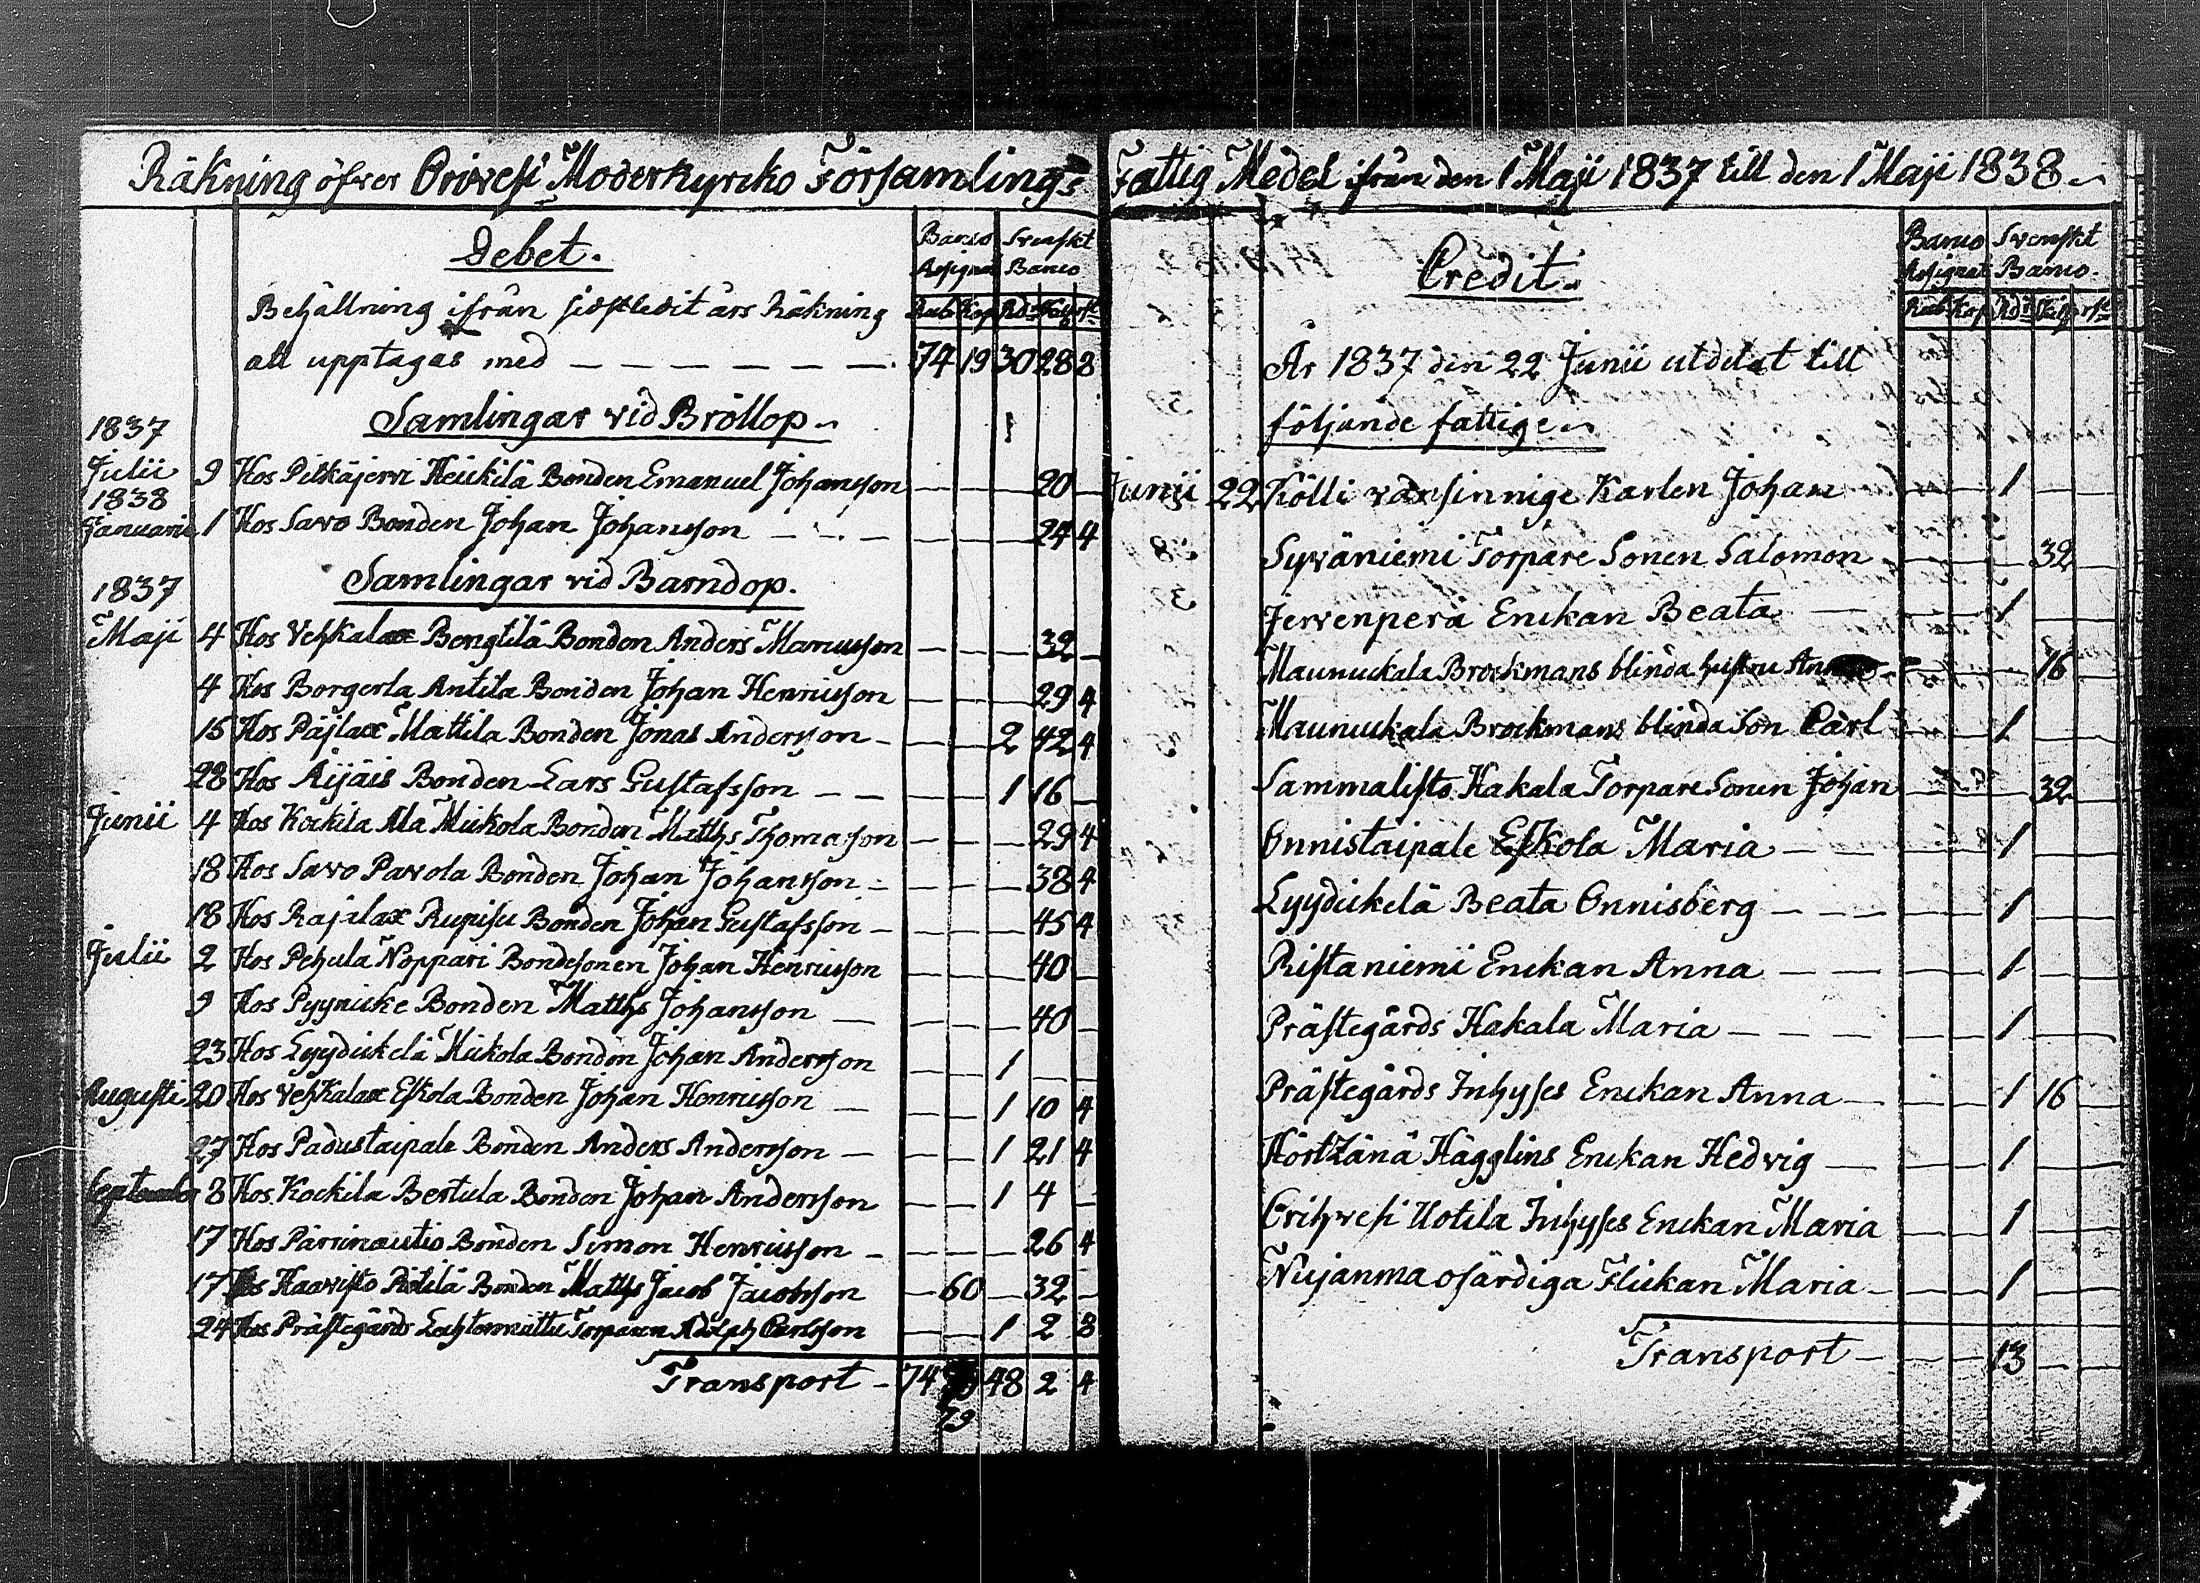 Räkning öfver Orivesi Moderkyrcko Församlings Fattig Medel ifrån den 1 Maji 1837 till den 1 Maji 1838
Debet.
Banco Assignat Svenskt Banco
Rub Kop Rdr Skill rst
Behållning ifrån sidstledit års Räkning
att upptagas med — 74 19 30 28 8
Samlingar vid Bröllop
1837
Julii 9 Hos Pitkäjervi Heickilä Bonden Emanuel Johansson — 20 —
1838
Januarii 1 Hos Savo Bonden Johan Johansson — 24 4
1837
Samlingar vid Barndop.
Maji 4 Hos Vehkalax Bengtilä Bonden Anders Marcusson — 32 —
4 Hos Borgerla Antila Bonden Johan Henricsson — 29 4
15 Hos Päjlax Mattila Bonden Jonas Andersson — 2 42 4
28 Hos Äijäis Bonden Lars Gustafsson — 1 16 —
Junii 4 Hos Kockila Ala Mickola Bonden Matths Thomasson — 29 4
18 Hos Savo Pavola Bonden Johan Johansson — 38 4
18 Hos Rajalax Rupisu Bonden Johan Gustafsson — 45 4
Julii 2 Hos Pehula Noppari Bondesonen Johan Henricsson — 40 —
9 Hos Pyynicke Bonden Matths Johansson — 40 —
23 Hos Lyydickelä Mickola Bonden Johan Andersson — 1 — —
Augusti 20 Hos Vehkalax Eskola Bonden Johan Henricsson — 1 10 4
27 Hos Padustaipale Bonden Anders Andersson — 1 21 4
September 8 Hos Kockila Bertula Bonden Johan Andersson — 1 4 —
17 Hos Pärrinautio Bonden Simon Henricsson — 26 4
17 Hos Haavisto Pietilä Bonden Matths Jacob Jacobsson — 60 — 32 —
24 Hos Prästegårds Lachtenmuttu Torparen Adolph Carlsson — 1 2 8
Transport — 74 48 2 4
79
Credit.
Banco Assignat Svenskt Banco.
Rub Kop Rdr Skill rst
År 1837 den 22 Junii utdelat till
följande fattige
Junii 22 Kölli vansinnige Karlen Johan — 1 — —
Syväniemi Torpare Sonen Salomon — 32 —
Jervenperä Enckan Beata — 1 — —
Maunuckala Brockmans blinda hustru Anna — 16 —
Maunuckala Brockmans blinda Son Carl — 1 — —
Sammalisto Hakala Torpare Sonen Johan — 32 —
Onnistaipale Eskola Maria — 1 — —
Lyydickelä Beata Onnisberg — 1 — —
Ristaniemi Enckan Anna — 1 — —
Prästegårds Hakala Maria — 1 — —
Prästegårds Inhyses Enckan Anna — 1 16 —
Hörtzänä Hägglins Enckan Hedvig — 1 — —
Orihvesi Uotila Inhyses Enckan Maria — 1 — —
Nujanma ofärdiga Flickan Maria — 1 — —
Transport — 13 — —